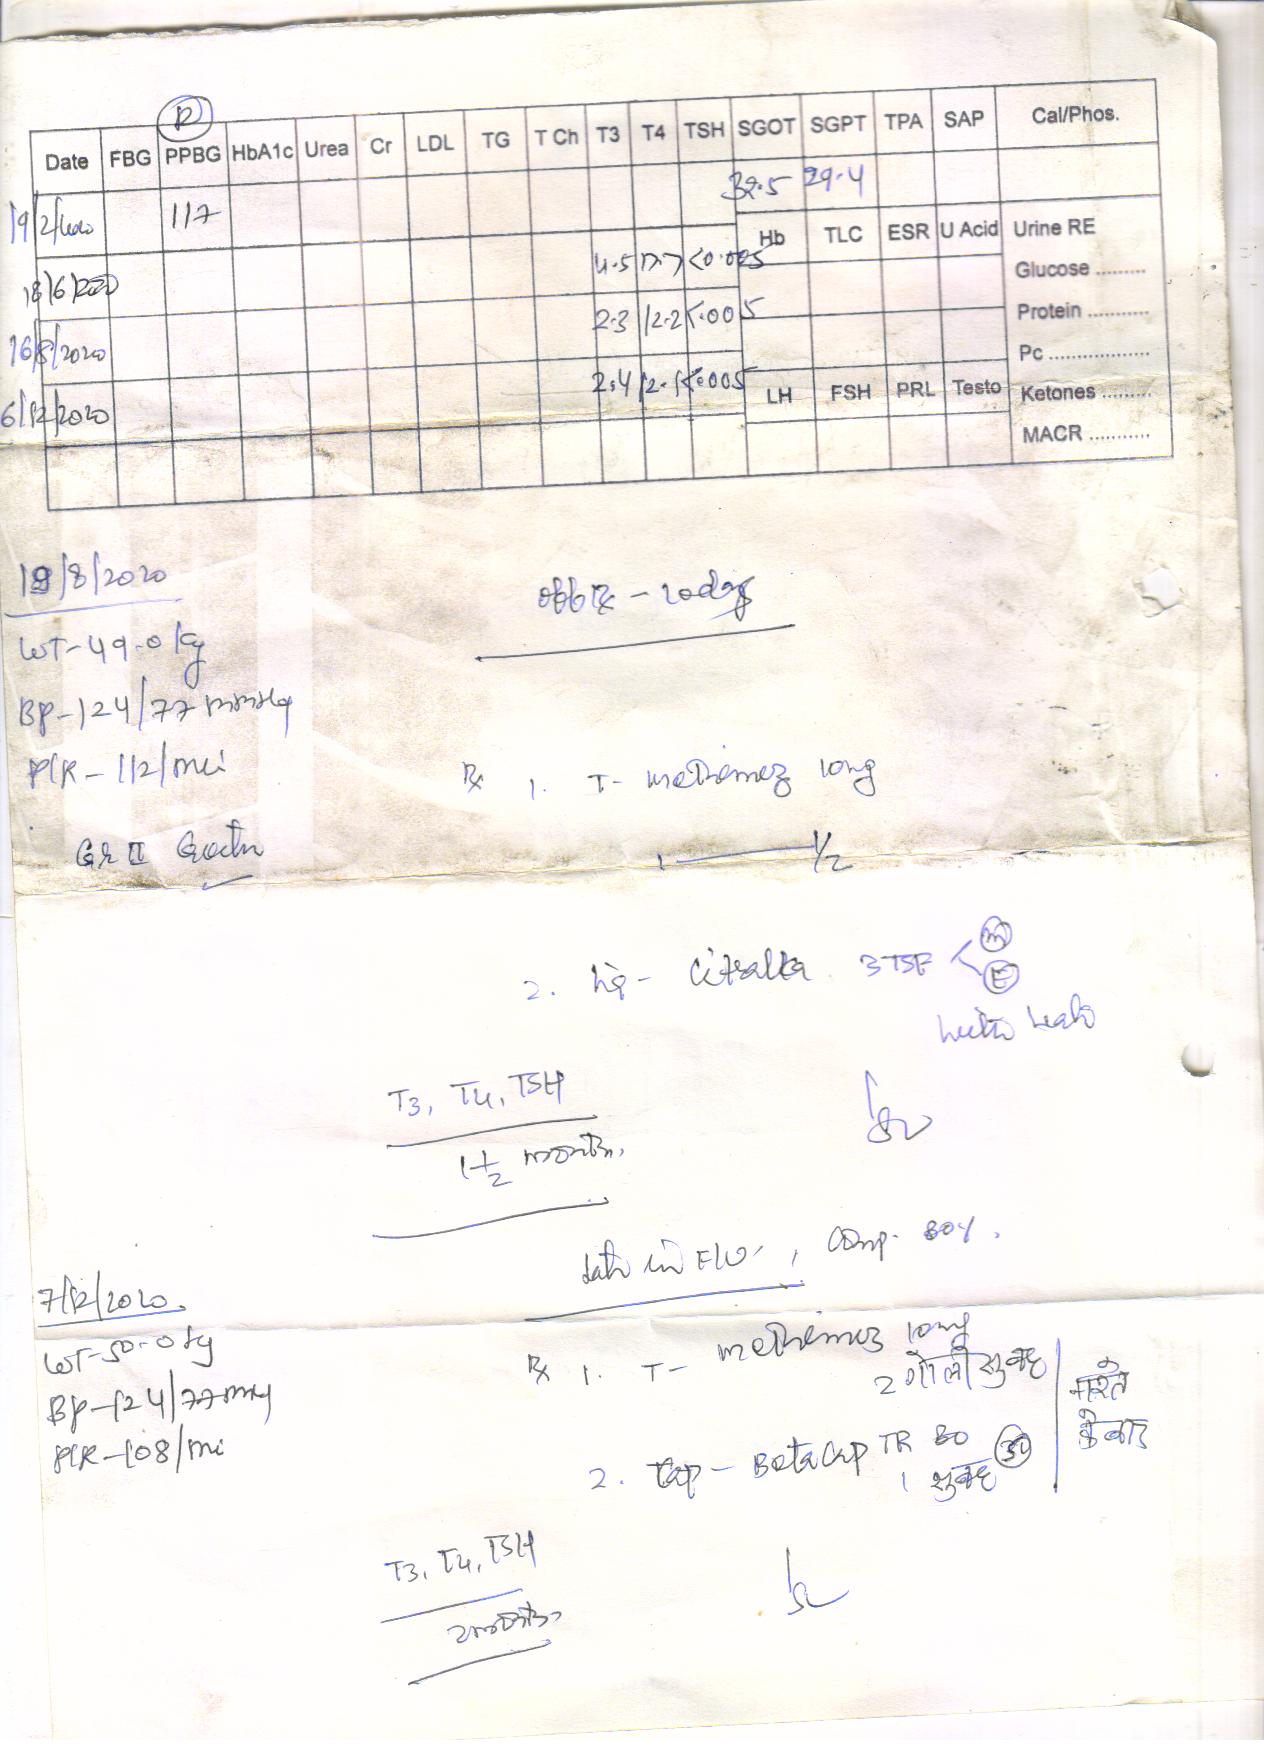 R
Date FBG PPBG HbA1c Urea Cr LDL TG T Ch T3 T4 TSH SGOT SGPT TPA SAP Cal/Phos.
19/2/2020 117 32.5 29.4
Hb TLC ESR U Acid Urine RE
18/6/2020 4.5 17.7 <0.005
Glucose .........
16/8/2020 2.3 12.2 <.005
Protein ...........
Pc ..................
6/12/2020 2.4 12.1 <.005
LH FSH PRL Testo Ketones .........
MACR ...........
18/8/2020
off Rx - 20days
WT-49.0 kg
BP-124/77 mmHg
P/R-112/mi
Rx 1. T- methimez long
Gr II Goitre
1 1/2
2. liq- Citralka 3TSF M
E
T3, T4, TSH
1 1/2 month.
late in F/U, Comp. 80%.
7/12/2020.
WT-50.0 kg
BP-124/77 mmHg
P/R-108/mi
Rx 1. T- methimez long
2 गोली सुबह
नाश्ते के बाद
2. Cap- Betacap TR 80 30
1 सुबह
T3, T4, TSH
2 month